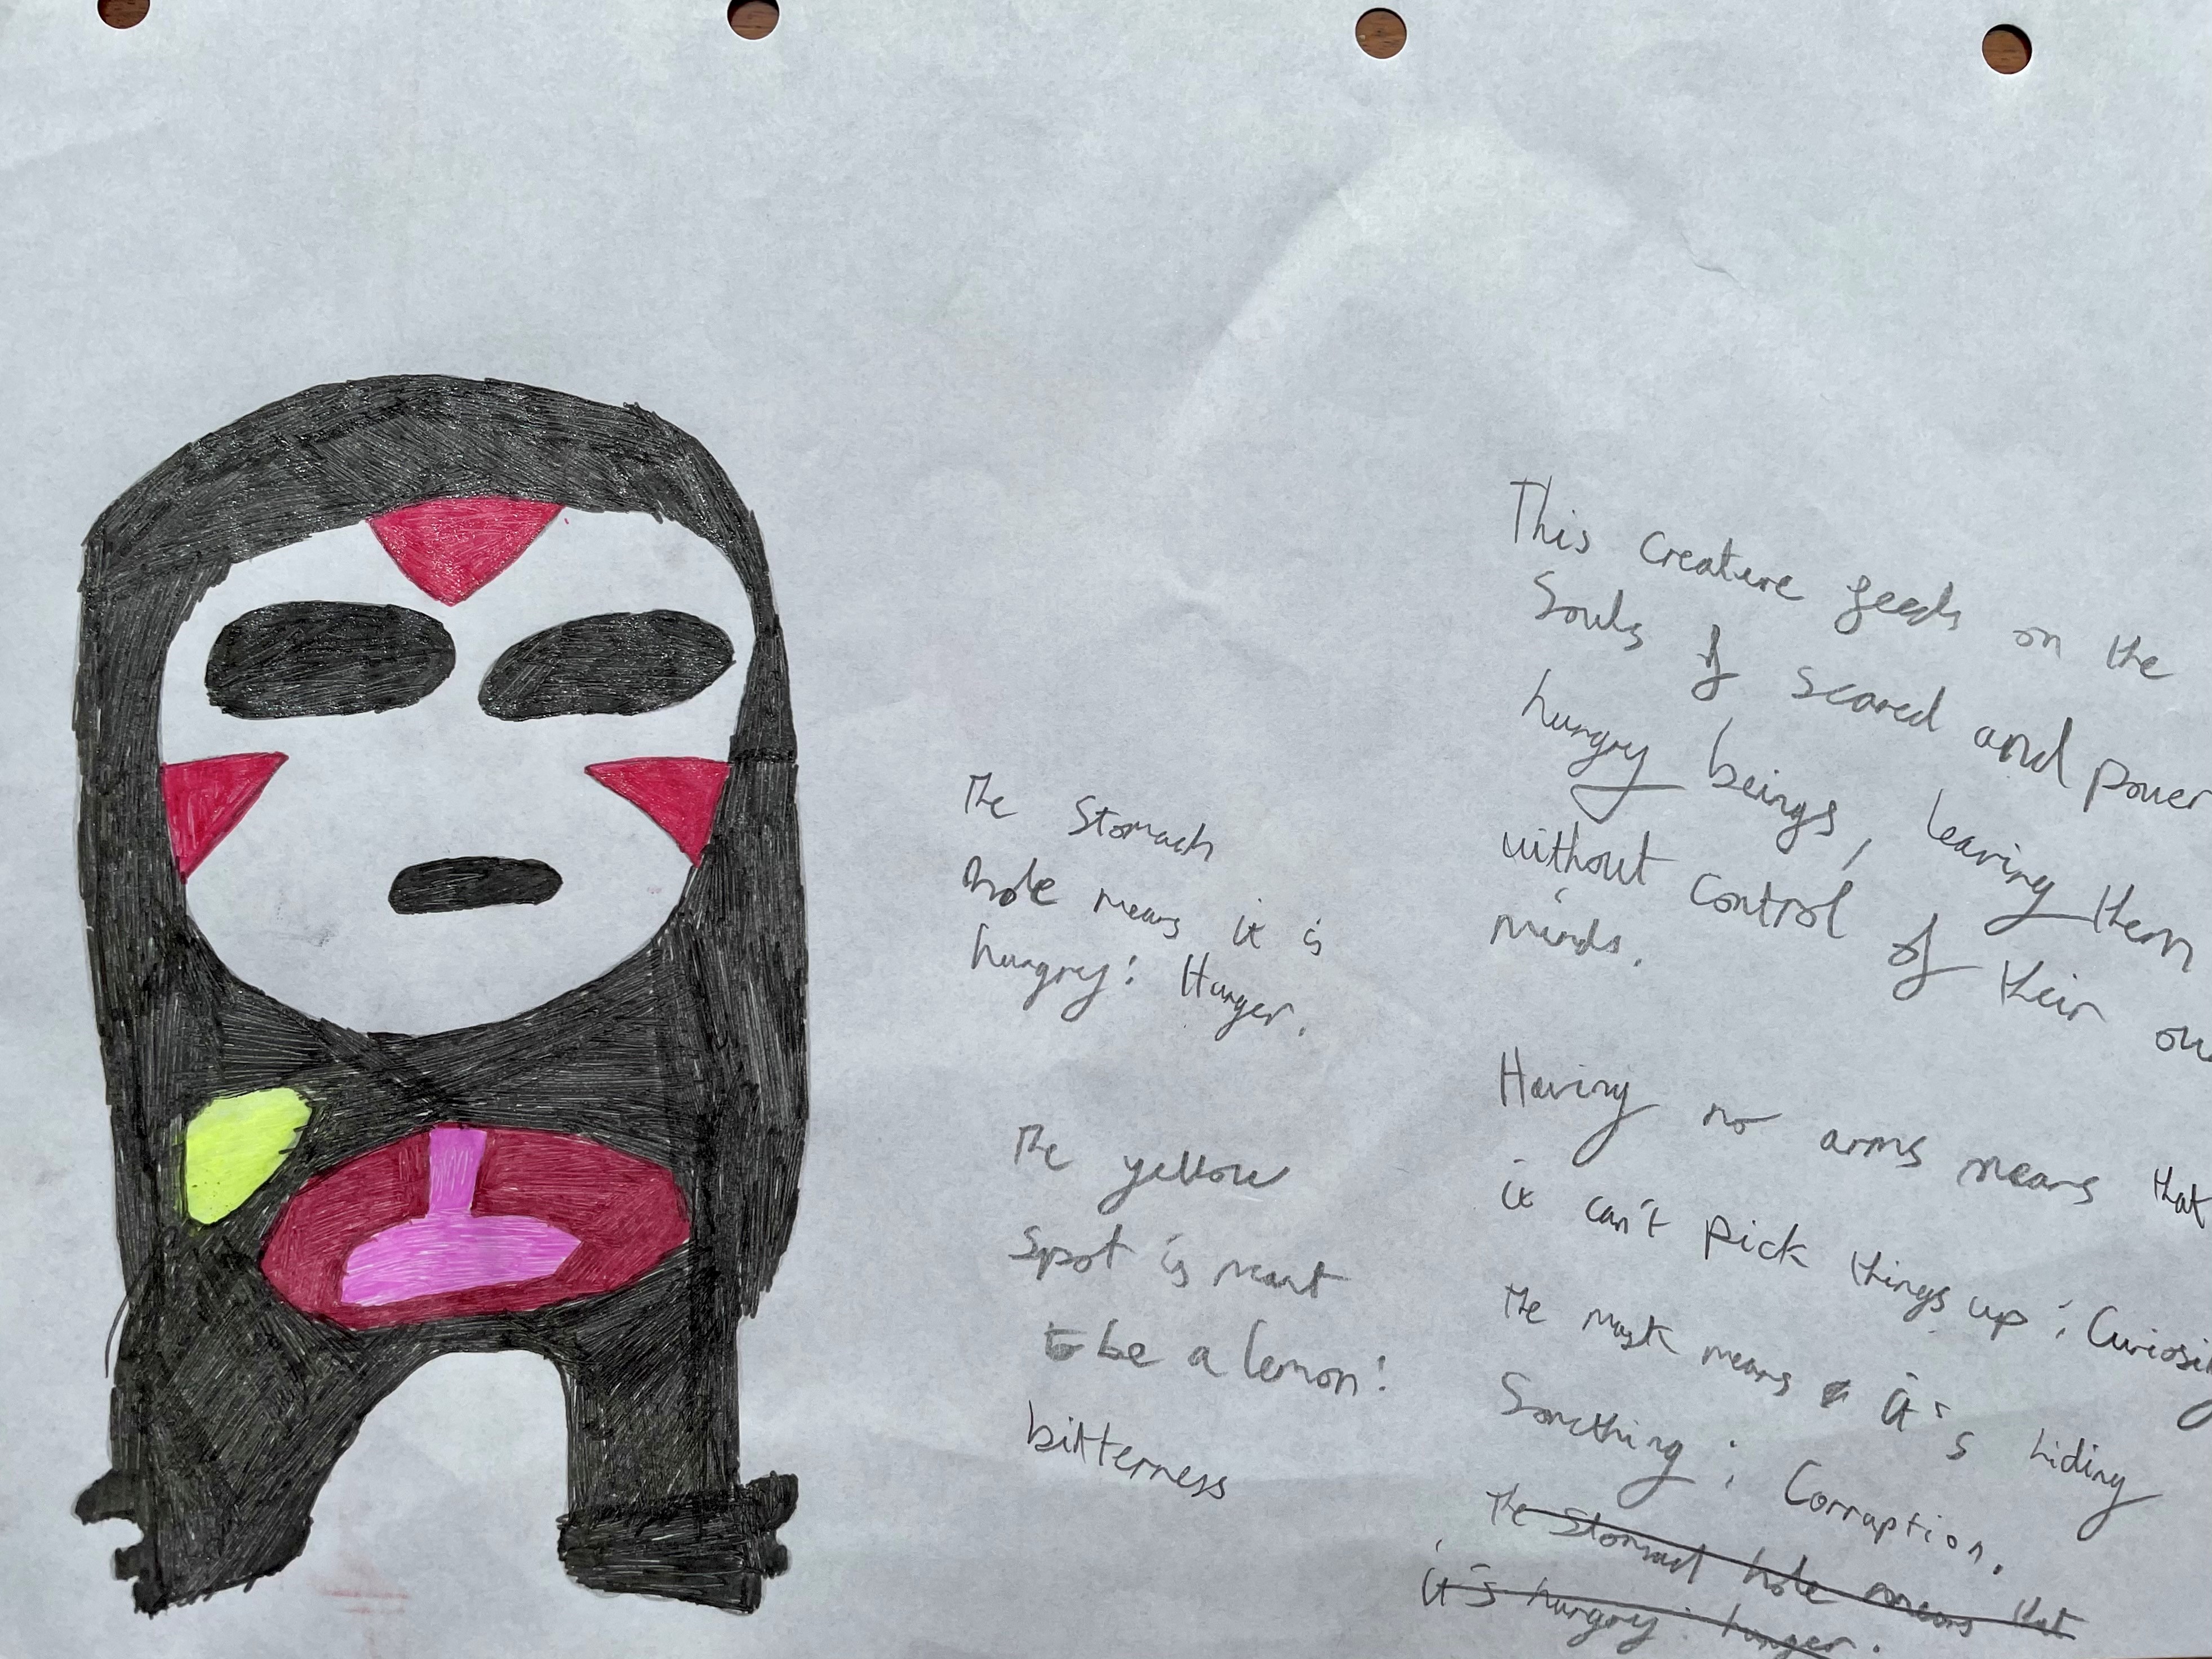 The Stomach
hole means it is
hungry: Hunger.
The yellow
Spot is meant
to be a lemon:
bitterness
This Creature feeds on the
Souls of scared and power
hungry beings, leaving them
without control of their ow
minds.
Having no arms means that
it can't pick things up: Curiosi
The mask means it's hiding
Something: Corraption.
The Stomach hole means that
it's hungry: hunger.